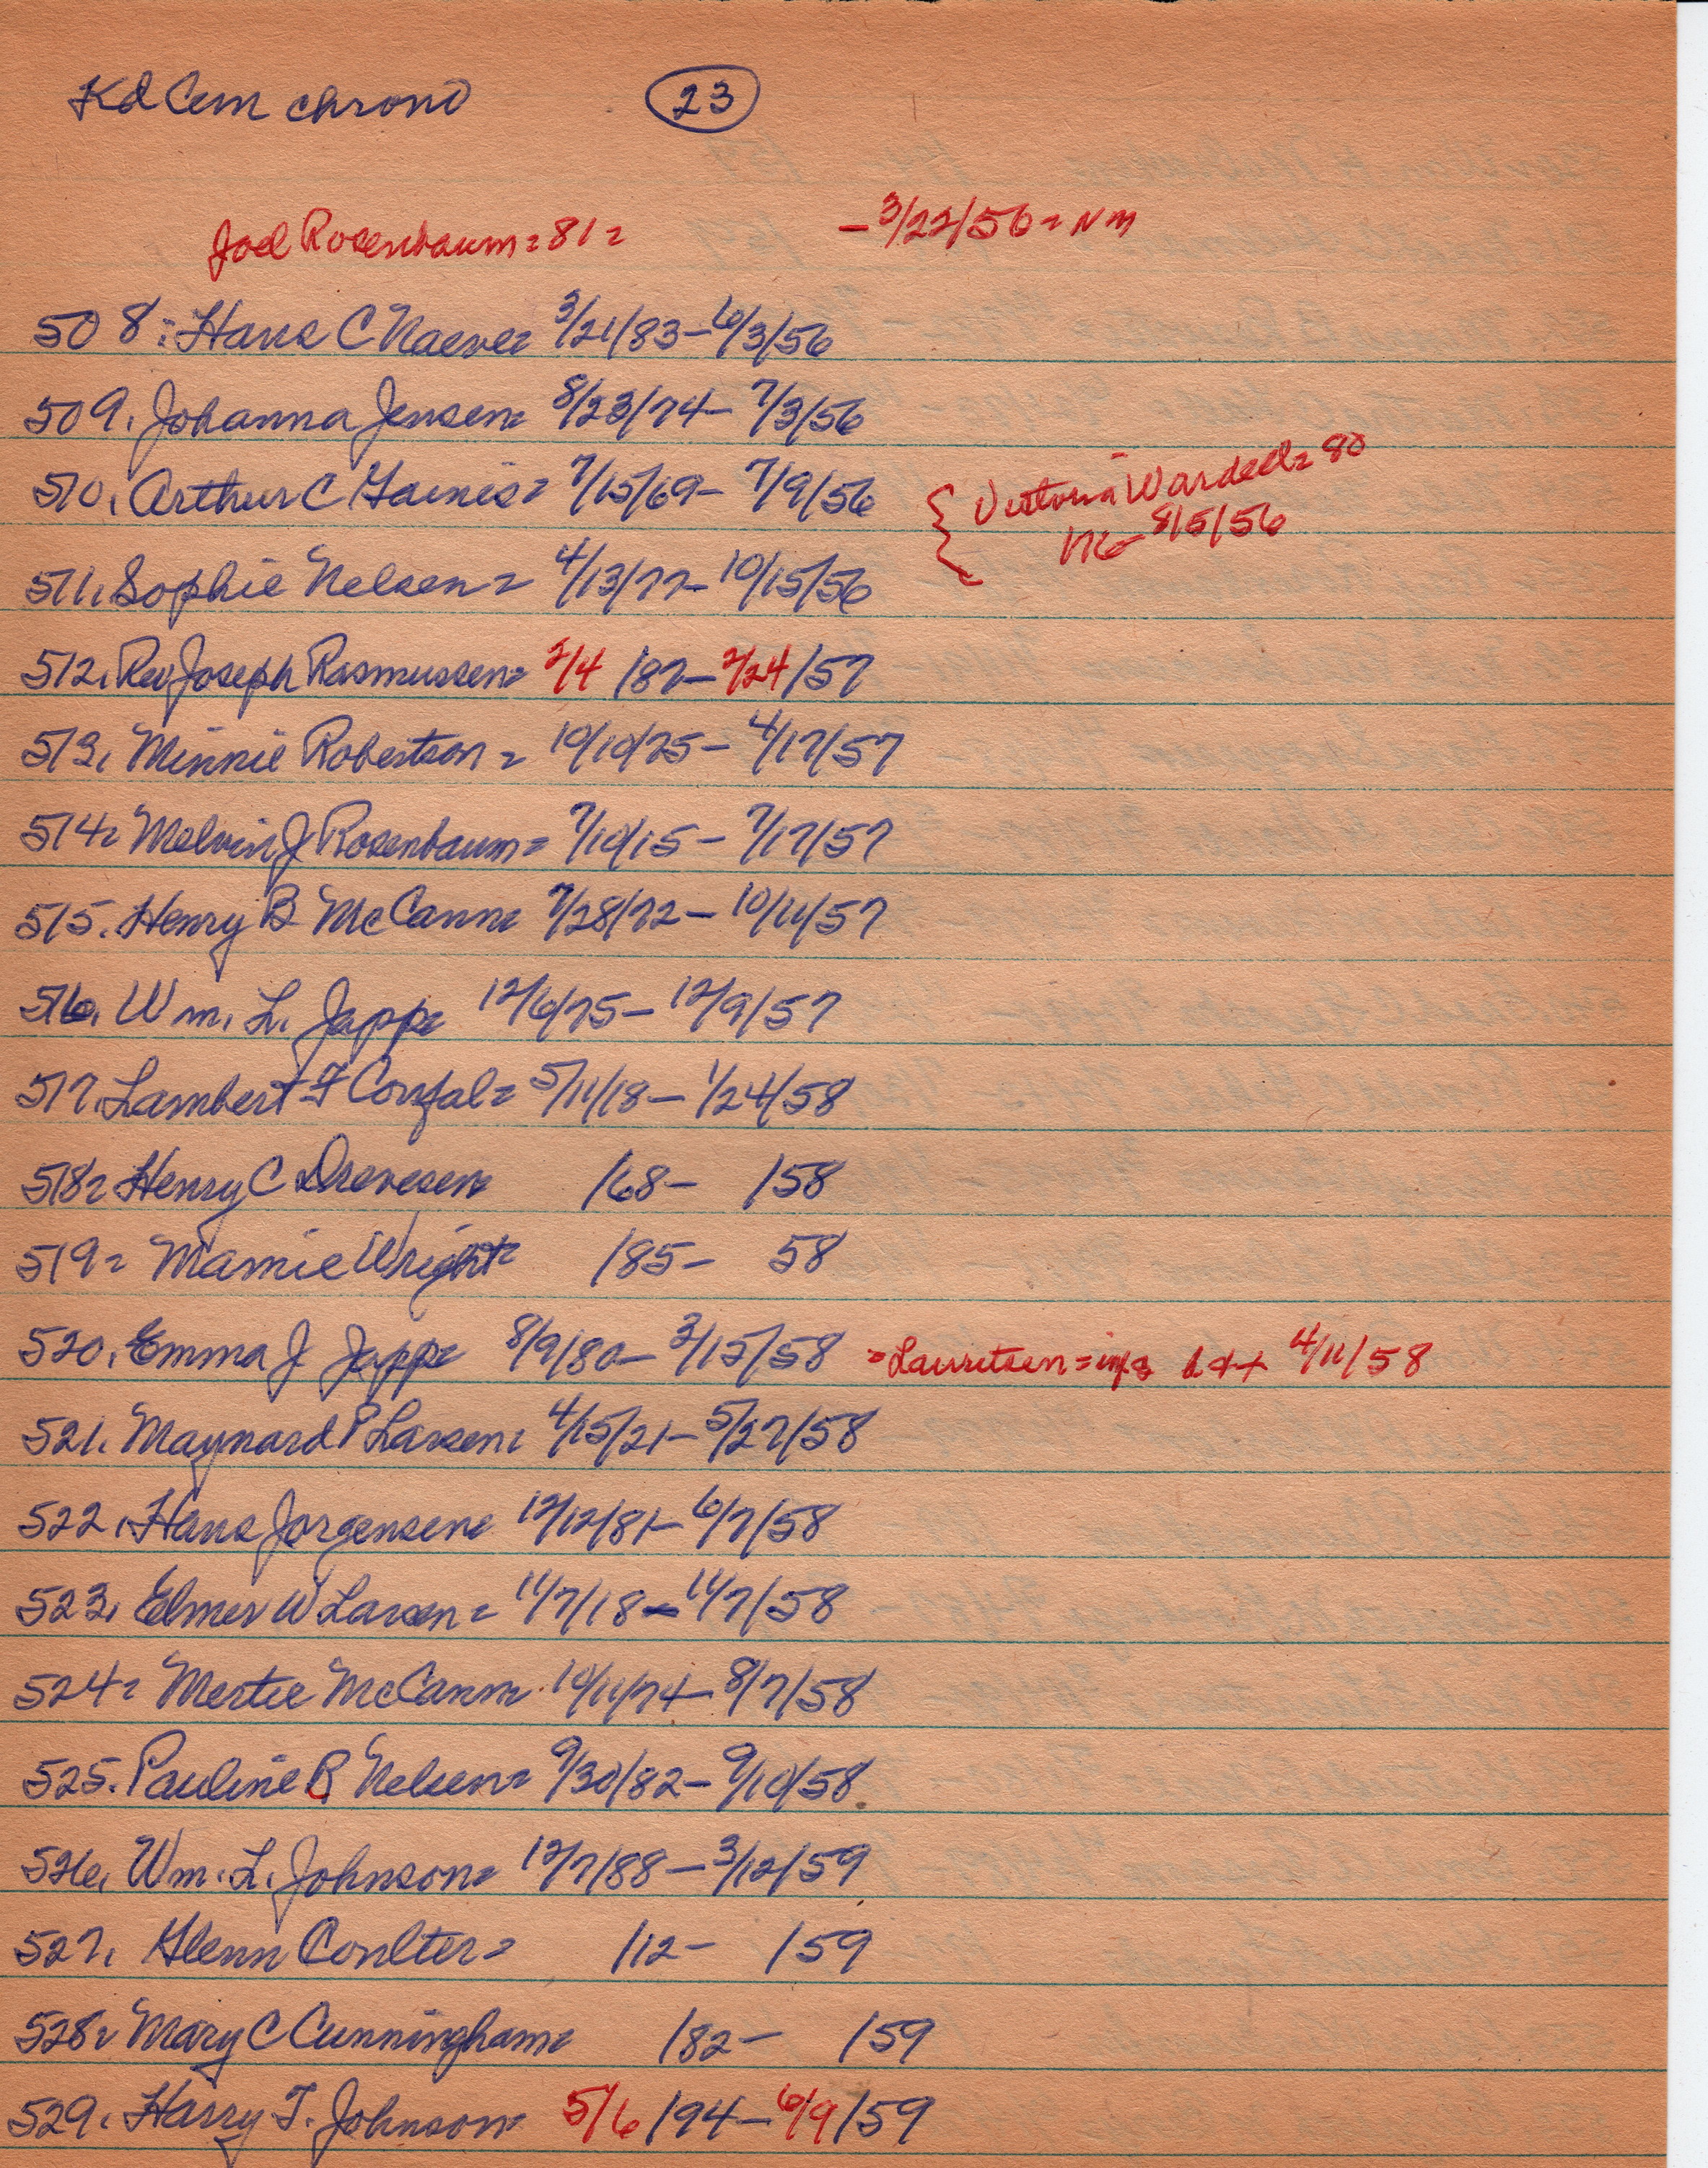 Kd Cem chrono 23
Joel Rosenbaum = 81 = - 3/22/56 = NM
508. Hans C Naeve = 3/21/83 - 6/3/56
509. Johanna Jensen = 8/23/74 - 7/3/56
510. Arthur C Gaines = 7/15/69 - 7/9/56
{ Victoria Wardell = 80
8/5/56
511. Sophie Nelsen = 4/13/77 - 10/15/56
512. Rev Joseph Rasmussen = 2/4 /87 - 2/24/57
513. Minnie Robertson = 10/10/75 - 4/17/57
514 = Melvin J Rosenbaum = 7/10/15 - 7/17/57
515. Henry B McCann = 7/28/72 - 10/11/57
516. Wm. L. Jappe 12/6/75 - 12/9/57
517. Lambert F = 5/11/18 - 1/24/58
518 = Henry C Drevesen /68 - /58
519 = Mamie Wright = /85 - 58
520. Emma J Jappe 8/9/80 - 3/15/58 = Lauritsen = inf 4/11/58
521. Maynard P Larsen = 4/15/21 - 5/27/58
522. Hans Jorgensen = 12/12/81 - 6/7/58
523. Elmer W Larsen = 11/7/18 - 11/7/58
524 = Mertie McCann = 10/11/74 - 8/7/58
525. Pauline B Nelsen = 9/30/82 - 9/10/58
526. Wm. L. Johnson = 12/7/88 - 3/12/59
527. Glenn Coulter = /12 - /59
528 = Mary C Cunningham = /82 - /59
529. Harry T. Johnson = 5/6 /94 - 6/9/59